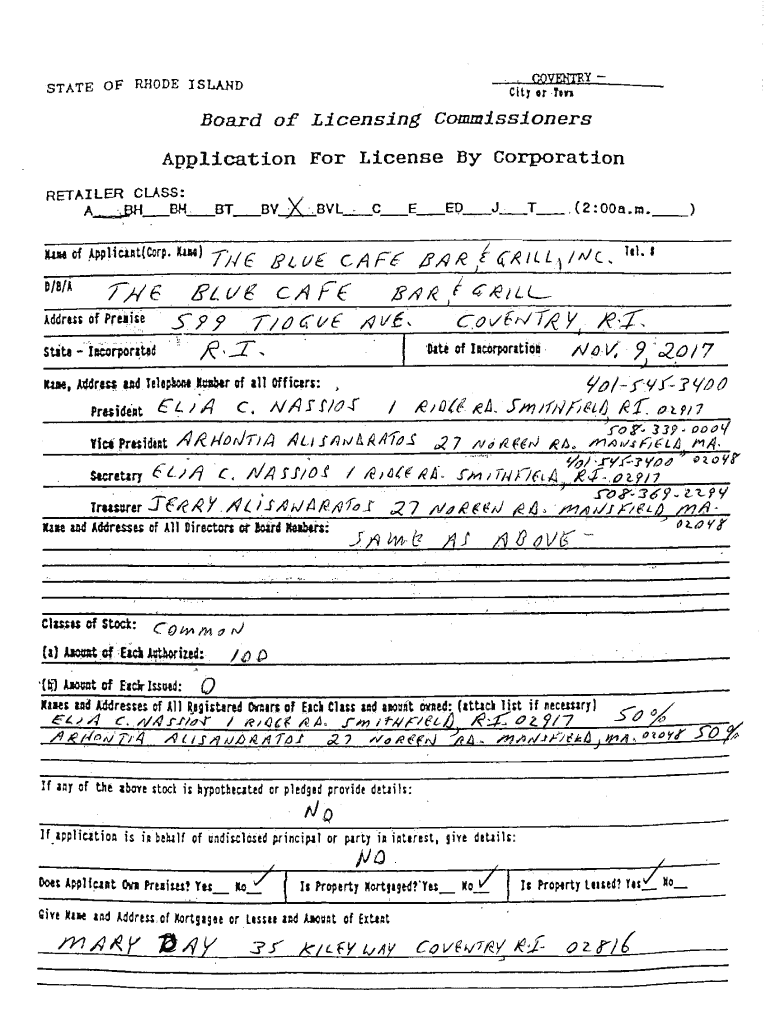 COVENTRY -
STATE OF RHODE ISLAND
City or Town
Board of Licensing Commissioners
Application For License By Corporation
RETAILER CLASS:
A___BH___BH___BT___BV X BVL___C___E___ED___J___T___(2:00a.m.____)
Name of Applicant(Corp. Name) THE BLUE CAFE BAR & GRILL, INC. Tel. #
D/B/A THE BLUE CAFE BAR & GRILL
Address of Premise 599 TIOGUE AVE. COVENTRY, R.I.
State - Incorporated R.I. Date of Incorporation NOV. 9, 2017
Name, Address and Telephone Number of all Officers: 401-545-3400
President ELIA C. NASSIOS 1 RIDGE RD. SMITHFIELD, RI. 02917
508-339-0004
Vice President ARHONTIA ALISANDRATOS 27 NOREEN RD. MANSFIELD, MA.
401-545-3400 02048
Secretary ELIA C. NASSIOS 1 RIDGE RD. SMITHFIELD, R.I. 02917
508-369-2294
Treasurer JERRY ALISANDRATOS 27 NOREEN RD. MANSFIELD, MA.
02048
Name and Addresses of All Directors or Board Members:
SAME AS ABOVE -
Classes of Stock: COMMON
(a) Amount of Each Authorized: 100
(b) Amount of Each Issued: 0
Names and Addresses of All Registered Owners of Each Class and amount owned: (attach list if necessary)
ELIA C. NASSIOS 1 RIDGE RD. SMITHFIELD, R.I. 02917 50%
ARHONTIA ALISANDRATOS 27 NOREEN RD. MANSFIELD, MA. 02048 50%
If any of the above stock is hypothecated or pledged provide details:
NO
If application is in behalf of undisclosed principal or party in interest, give details:
NO
Does Applicant Own Premises? Yes__ No ✓ Is Property Mortgaged? Yes__ No ✓ Is Property Leased? Yes ✓ No__
Give Name and Address of Mortgagee or Lessee and Amount of Extent
MARY DAY 35 KILEY WAY COVENTRY, R.I. 02816